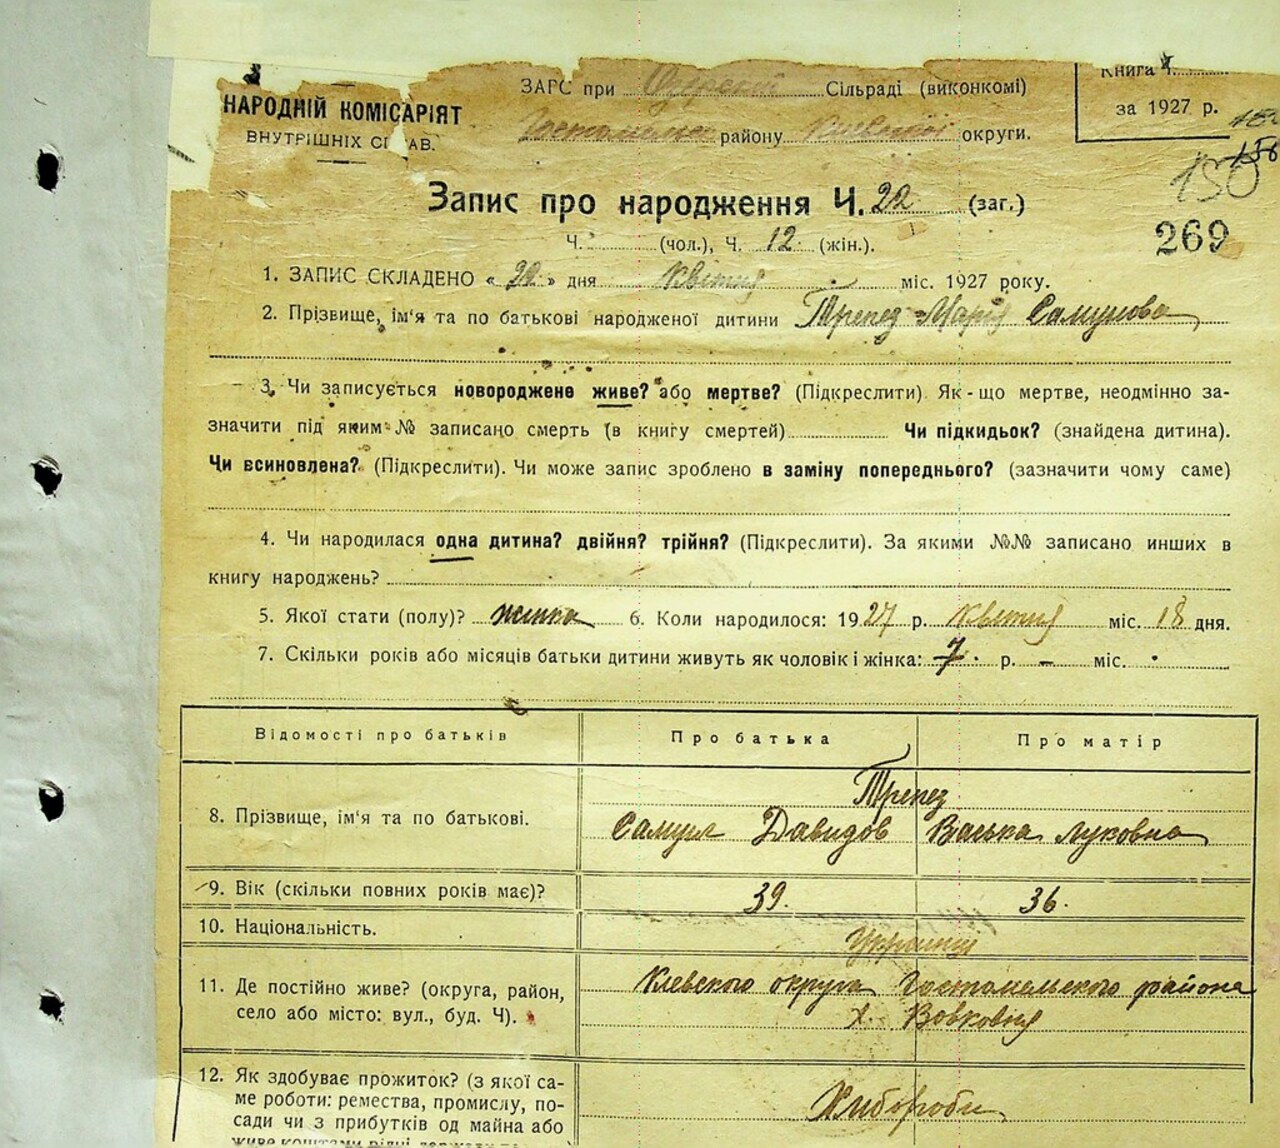 Книга Ч.
ЗАГС при Озерській Сільраді (виконкомі)
за 1927 р.
НАРОДНІЙ КОМІСАРІЯТ
Гостомельс району Київської округи.
ВНУТРІШНІХ СПРАВ.
156
150
Запис про народження Ч. 22 (заг.)
269
Ч. (чол.), Ч. 12. (жін.).
1. ЗАПИС СКЛАДЕНО « 22 » дня Квітня міс. 1927 року.
2. Прізвище, ім'я та по батькові народженої дитини Трепез Марія Самулова
3. Чи записується новороджене живе? або мертве? (Підкреслити). Як-що мертве, неодмінно за-
значити під яким № записано смерть (в книгу смертей) Чи підкидьок? (знайдена дитина).
Чи всиновлена? (Підкреслити). Чи може запис зроблено в заміну попереднього? (зазначити чому саме)
4. Чи народилася одна дитина? двійня? трійня? (Підкреслити). За якими №№ записано инших в
книгу народжень?
5. Якої стати (полу)? жінка 6. Коли народилося: 1927 р. Квітня міс. 18 дня.
7. Скільки років або місяців батьки дитини живуть як чоловік і жінка: 7. р. — міс.
Відомості про батьків Про батька Про матір
Трепез
8. Прізвище, ім'я та по батькові. Самуил Давидов Васька Луковна
9. Вік (скільки повних років має)? 39. 36.
10. Національність. Українці
11. Де постійно живе? (округа, район, Киевского округа Гостомельского района
село або місто: вул., буд. Ч). х. Вовковня
12. Як здобуває прожиток? (з якої са-
ме роботи: ремества, промислу, по- Хлібороби
сади чи з прибутків од майна або
живе коштами рідні